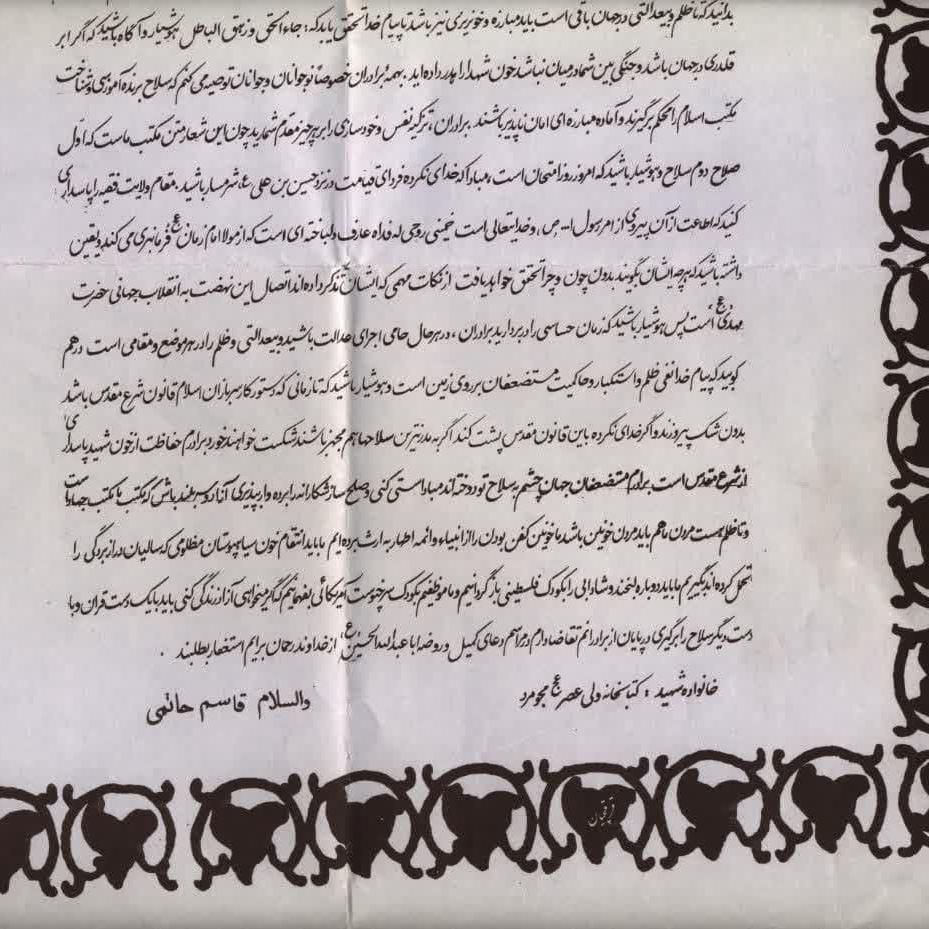 بدانید که تا ظلم و بیعدالتی در جهان باقی است باید مبارزه و خونریزی نیز باشد تا پیام خدا تحقق یابد که: جاء الحق و زهق الباطل هوشیار و آگاه باشید که اگر ابر
قدری در جهان باشد و جنگی بین شما در میان نباشد خون شهدا را پدر داده اید. بهمهٔ برادران خصوصاً نوجوانان و جوانان توصیه می کنم که سلاح برنده آموزی و شناخت
مکتب اسلام را محکم برگیرند و آماده مبارزه ای امان ناپذیر باشند برادران، تزکیه نفس و خودسازی را بر هر چیز مقدم شمارید چون این شعار متن مکتب ماست که اول
صلاح دوم سلاح و هوشیار باشید که امروز روز امتحان است، مبادا که خدای نکرده فردای قیامت در نزد حسین بن علی ع، شرمسار باشید. مقام ولایت فقیه را پاسداری
کنید که اطاعت از آن پیروی از امر رسول ا... ص، و خدا یتعالی است خمینی روحی له فداه عارف دلباخته ای است که از مولا امام زمان عج فرمانبری می کند و یقین
داشته باشید که هر چه ایشان بگویند بدون چون و چرا تحقق خواهد یافت از نکات مهمی که ایشان تذکر داده اند اتصال این نهضت به انقلاب جهانی حضرت
مهدی عج است پس هوشیار باشید که زمان حساسی را در بردارید برادران، در هر حال حامی اجرای عدالت باشید و بیعدالتی و ظلم را در هر موضع و مقامی است در هم
کوبید که پیام خدا نفی ظلم و استکبار و حاکمیت مستضعفان بر روی زمین است و هوشیار باشید که تا زمانی که دستور کار سربازان اسلام قانون شرع مقدس باشد
بدون شک پیروزند و اگر خدای نکرده باین قانون مقدس پشت کند اگر به مدرنترین سلاحها هم مجهز باشند شکست خواهند خورد برادرم حفاظت از خون شهید پاسداری
از شرع مقدس است برادرم مستضعفان جهان چشم به سلاح تو دوخته اند مبادا سستی کنی و صلح سازشکارانه را برده وار بپذیری آزاد و سربلند باش که مکتب ما مکتب جهاد است
و تا ظلم هست مردن ما هم باید مردن خونین باشد ما خونین کفن بودن را از انبیاء و ائمه اطهار به ارث برده ایم ما باید انتقام خون سیاهپوستان مظلومی که سالیان دراز بردگی را
تحمل کرده اند بگیریم ما باید دوباره لبخند و شادابی را بکودک فلسطینی بازگردانیم و ما موظفیم بکودک سرخپوست آمریکائی بفهمانیم که اگر میخواهی آزاد زندگی کنی باید با یک دست قرآن و با
دست دیگر سلاح را برگیری در پایان از برادرانم تقاضا دارم در مراسم دعای کمیل و روضه ابا عبدالله الحسین ع، از خداوند رحمان برایم استغفار بطلبند.
خانواده شهید: کتابخانه ولی عصر عج مجومرد
والسلام قاسم حاتمی